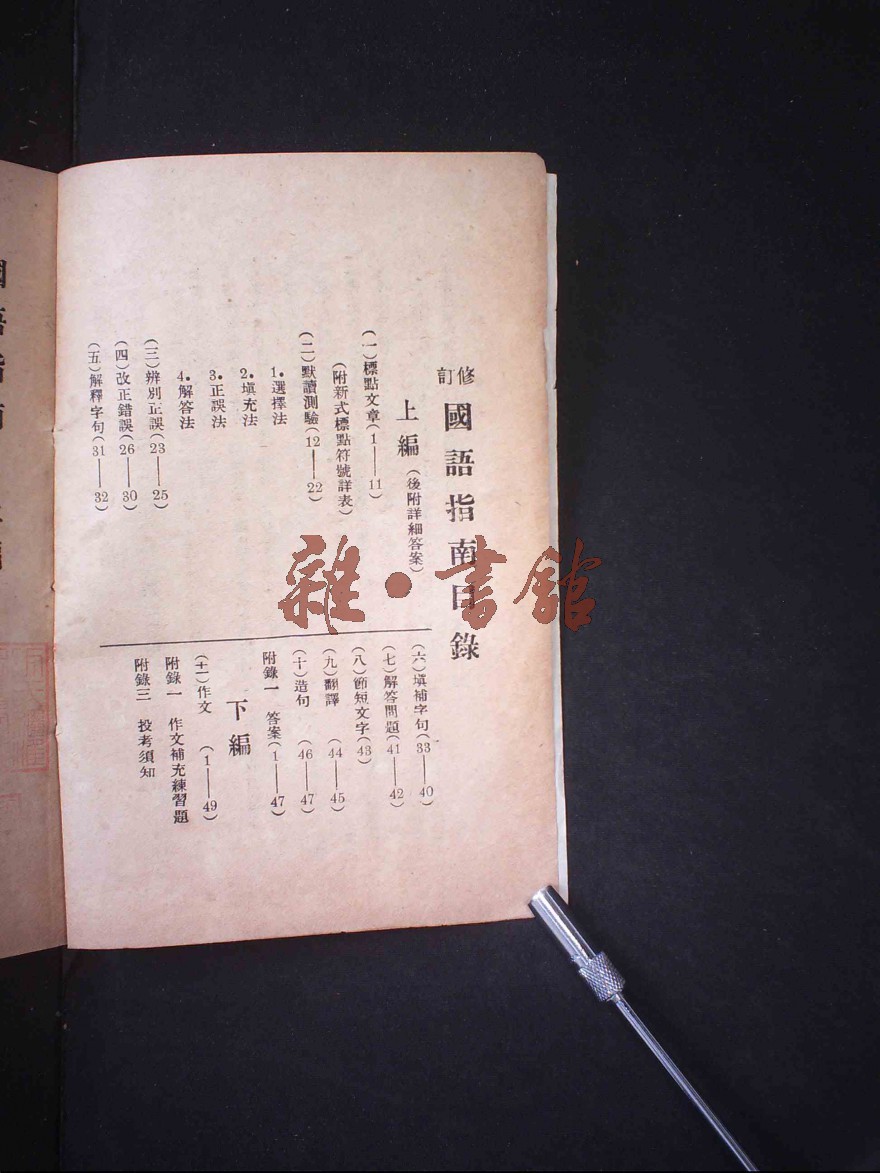 修訂 國語指南目錄
上編 (後附詳細答案)
(一)標點文章(1——11)
(附新式標點符號詳表)
(二)默讀測驗(12——22)
1.選擇法
2.填充法
3.正誤法
4.解答法
(三)辨別正誤(23——25)
(四)改正錯誤(26——30)
(五)解釋字句(31——32)
(六)填補字句(33——40)
(七)解答問題(41——42)
(八)節短文字(43)
(九)翻譯 (44——45)
(十)造句 (46——47)
附錄一 答案(1——47)
下編
(十一)作文 (1——49)
附錄一 作文補充練習題
附錄三 投考須知
雜·書館
國語指南